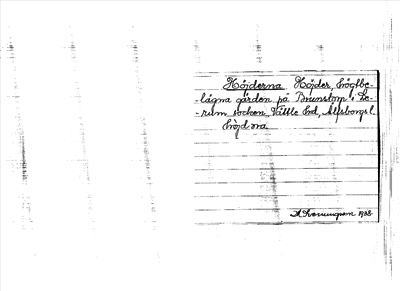 Höjderna Höjder, högtbe-
-lägna gärden på Brunstorp i Le-
-rum socken, Vättle hd, Älfsborgs l.
höjdəna
A. 1928